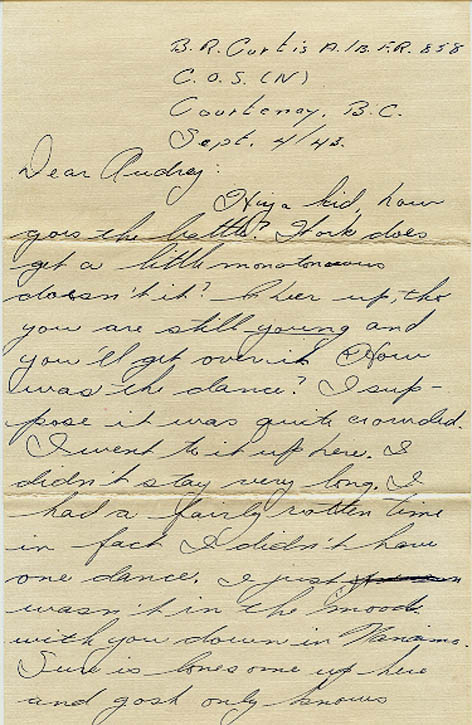 B.R. Curtis A./B. F.R. 858
C.O.S. (N)
Courtenay, B.C.
Sept. 4/43.
Dear Audrey:
Hiya kid, how
goes the battle? Work does
get a little monotonous
doesn't it? Cheer up, tho
you are still young and
you'll get over it. How
was the dance? I sup-
pose it was quite crowded.
I went to it up here. I
didn't stay very long. I
had a fairly rotten time
in fact I didn't have
one dance. I just
wasn't in the mood
with you down in Nanaimo.
Sure is lonesome up here
and gosh only knows